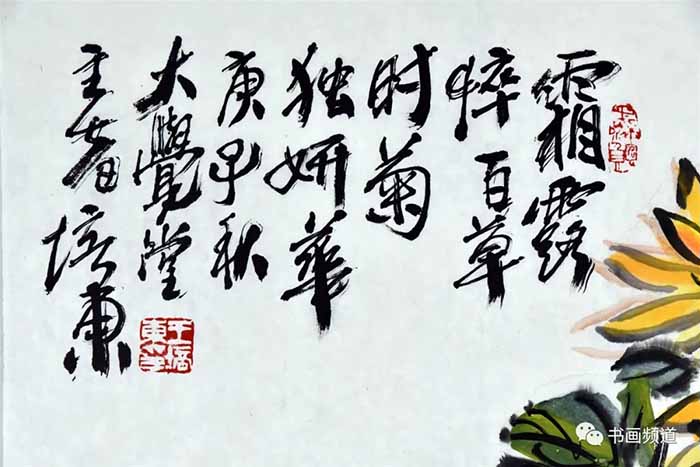 霜露
悴百草
时菊
独妍華
庚子秋
大覺堂
主者培東
书画频道